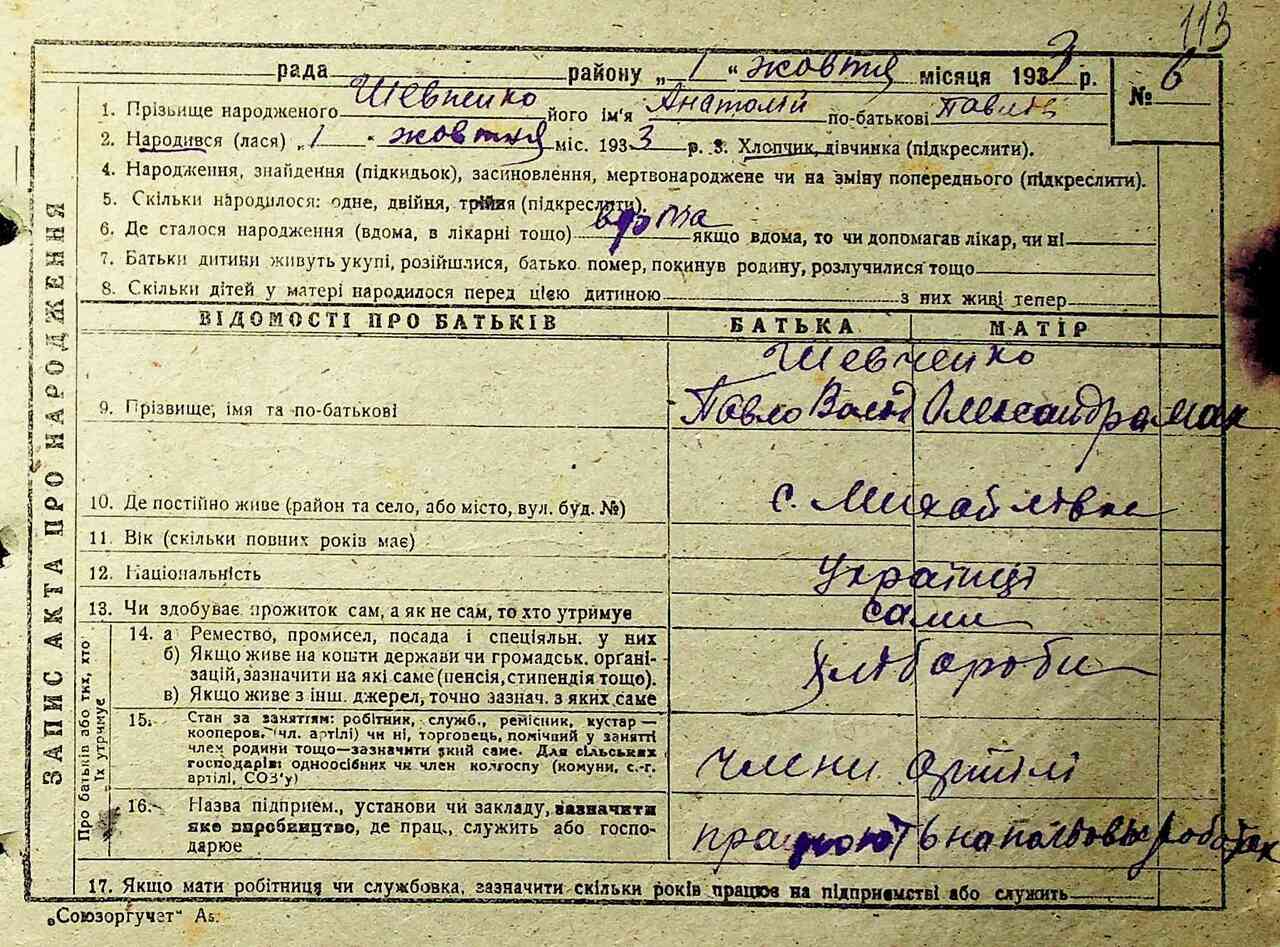 113
рада района „ 1 “ жовтня місяця 1933 р. № 6
1. Прізьище народженого Шевченко його ім'я Анатолій по-батькові Павлов
2. Народився (лася) „ 1 “ жовтня міс. 1933 р. 3. Хлопчик, дівчинка (підкреслити).
4. Народження, знайдення (підкидьок), засиновлення, мертвонароджене чи на зміну попереднього (підкреслити).
5. Скільки народилося: одне, двійня, трійня (підкреслити).
6. Де сталося народження (вдома, в лікарні тощо) вдома якщо вдома, то чи допомагав лікар, чи ні
7. Батьки дитини живуть укупі, розійшлися, батько помер, покинув родину, розлучилися тощо
8. Скільки дітей у матері народилося перед цією дитиною з них живі тепер
ЗАПИС АКТА ПРО НАРОДЖЕННЯ
ВІДОМОСТІ ПРО БАТЬКІВ БАТЬКА МАТІР
Шевченко
9. Прізвище, імя та по-батькові Павло Олександра
10. Де постійно живе (район та село, або місто, вул. буд. №) с. Михайлівка
11. Вік (скільки повних років має)
12. Національність Українці
13. Чи здобуває прожиток сам, а як не сам, то хто утримує сами
Про батьків або тих, хто їх утримує
14. а Ремество, промисел, посада і спеціяльн. у них
б) Якщо живе на кошти держави чи громадськ. орґані-
зацій, зазначити на які саме (пенсія, стипендія тощо). хлібороби
в) Якщо живе з інш. джерел, точно зазнач. з яких саме
15. Стан за заняттям: робітник, служб., ремісник, кустар —
кооперов. (чл. артілі) чи ні, торговець, помічний у занятті
член родини тощо—зазначити який саме. Для сільських
господарів: одноосібних чи член колгоспу (комуни, с.-г. члени артілі
артілі, СОЗ'у)
16. Назва підприєм., установи чи закладу, зазначити
яке виробництво, де прац., служить або госпо- працюють на польових роботах
дарює
17. Якщо мати робітниця чи службовка, зазначити скільки років працює на підприємстві або служить
„Союзоргучет“ А5.